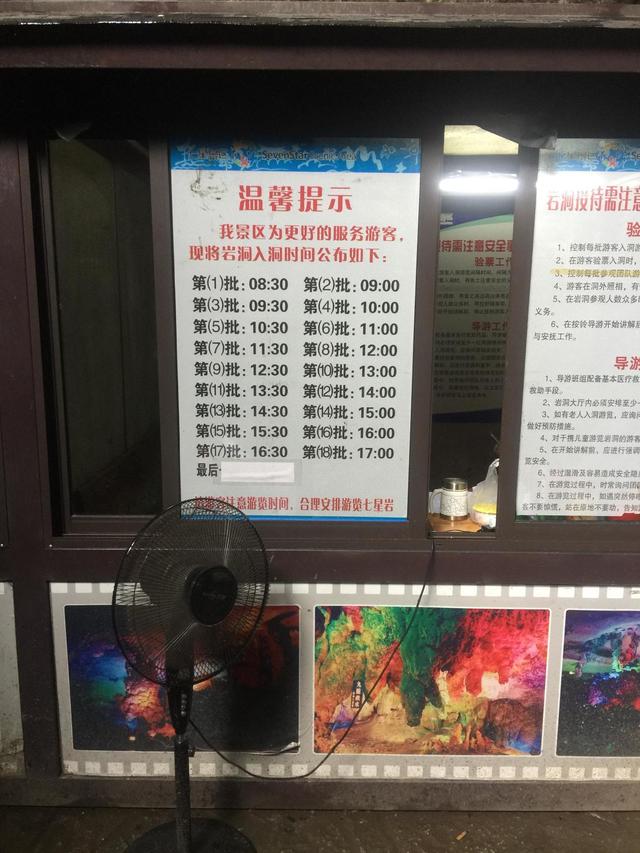 SevenStar
温馨提示
我景区为更好的服务游客，
现将岩洞入洞时间公布如下：
第(1)批：08:30 第(2)批：09:00
第(3)批：09:30 第(4)批：10:00
第(5)批：10:30 第(6)批：11:00
第(7)批：11:30 第(8)批：12:00
第(9)批：12:30 第(10)批：13:00
第(11)批：13:30 第(12)批：14:00
第(13)批：14:30 第(14)批：15:00
第(15)批：15:30 第(16)批：16:00
第(17)批：16:30 第(18)批：17:00
最后
注意游览时间、合理安排游览七星岩
待需注意安全
验票工作
导游工
岩洞接待需注意
验
1、控制每批游客入洞游
2、在游客验票入洞时，
3、控制每批参观团队游
4、游客在洞外照相，有
5、在岩洞参观人数众多
义务。
6、在按铃导游开始讲解
与安抚工作。
导游
1、导游班组配备基本医疗救
救助手段。
2、岩洞大厅内必须安埠至少一
3、如有老人入洞游览，应询问
做好预防措施。
4、对于携儿童游览岩洞的游客
5、在开始讲解前，应进行强调
览安全。
6、经过湿滑及容易造成安全隐
7、在游览过程中，时常询问团
8、在游览过程中，如遇突然停电
客不要惊慌，站在原地不要动，告知